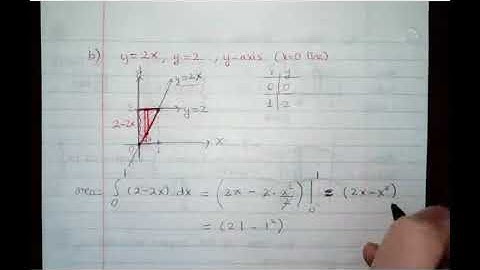 b) y=2x, y=2, y-axis (x=0 line)
y
y=2x
x y
0 0
1 2
2
y=2
2-2x
0 1 x
area = ∫₀¹ (2-2x) dx = (2x - 2·x²/2) |₀¹ = (2x-x²)
= (2·1 - 1²)